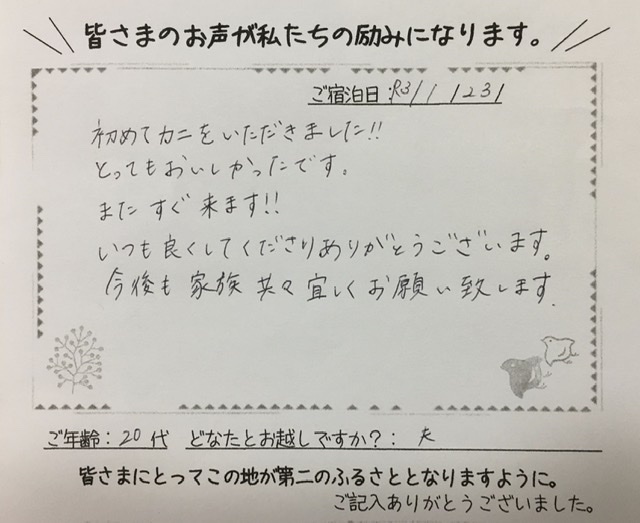 皆さまのお声が私たちの励みになります。
ご宿泊日:R3/1/1231
初めてカニをいただきました!!
とってもおいしかったです。
またすぐ来ます!!
いつも良くしてくださりありがとうございます。
今後も家族共々宜しくお願い致します.
ご年齢:20代 どなたとお越しですか?:夫
皆さまにとってこの地が第二のふるさととなりますように。
ご記入ありがとうございました。